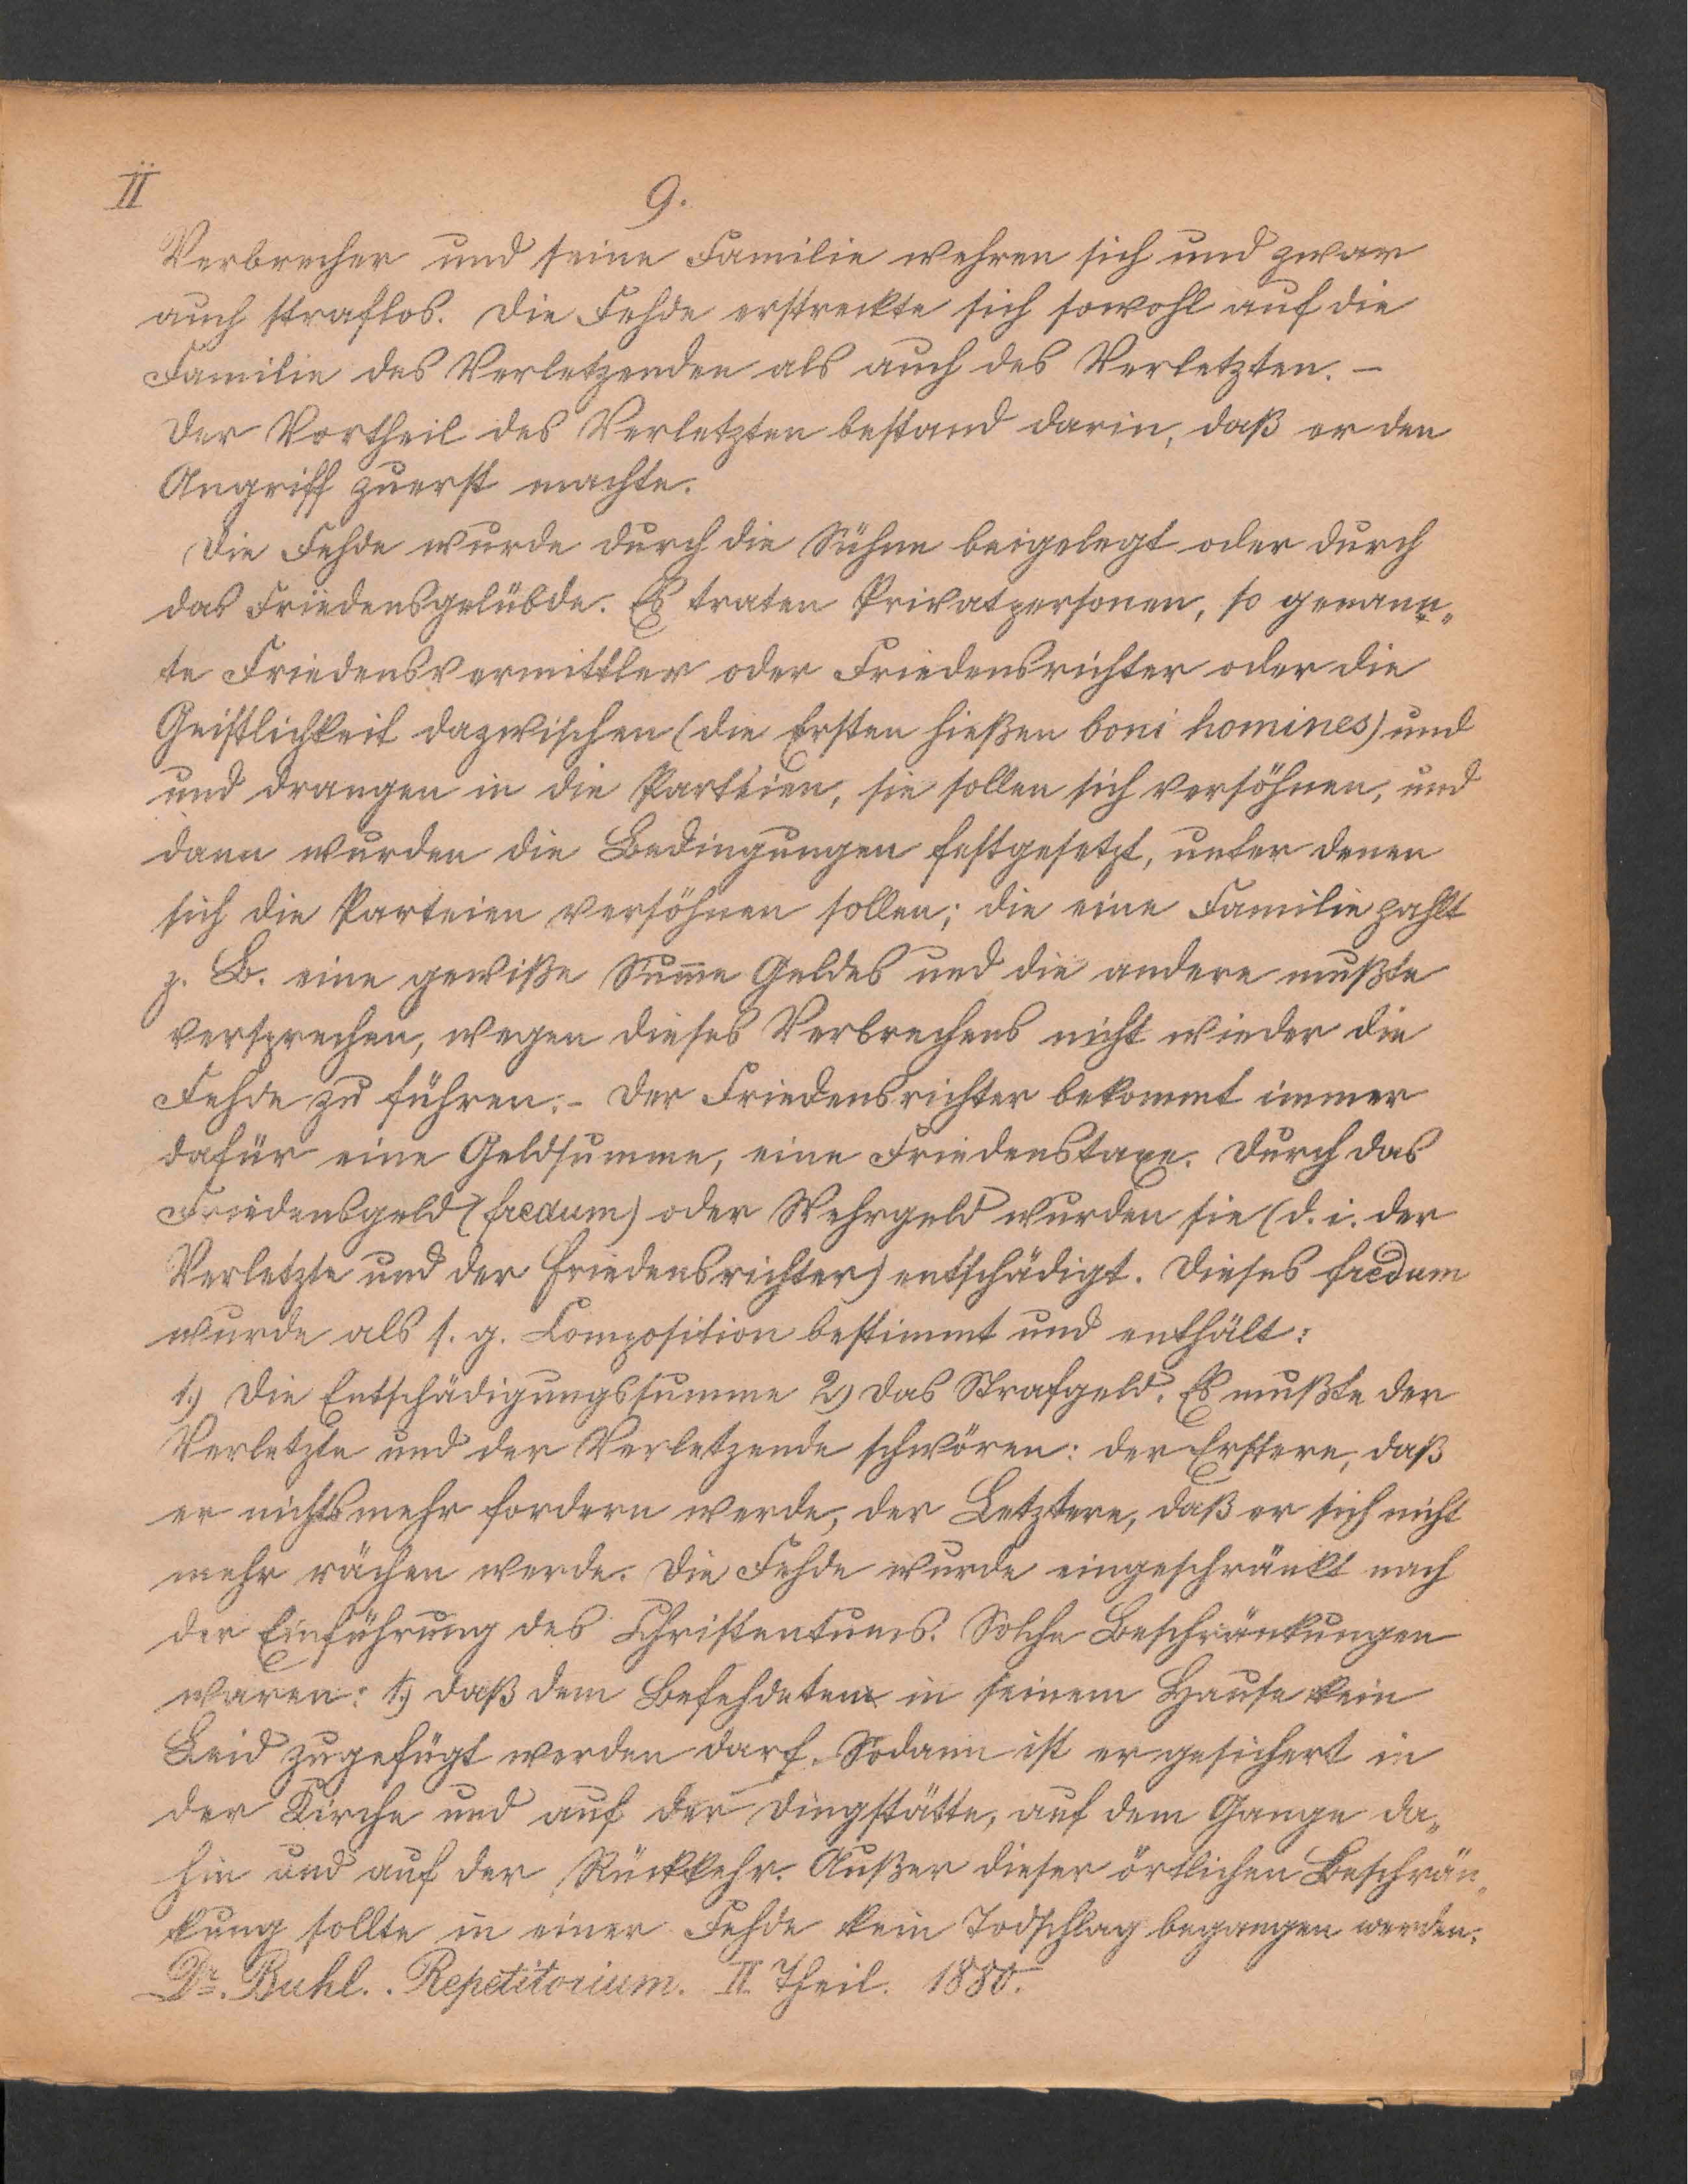 II
9.
Verbrecher und seine Familie wehren sich und zwar
auch straflos. Die Fehde erstreckte sich sowohl auf die
Familie des Verletzenden als auch des Verletzten. –
Der Vortheil des Verletzten bestand darin, daß er den
Angriff zuerst machte.
Die Fehde wurde durch die Sühne beigelegt oder durch
das Friedensgelübde. Es traten Privatpersonen, so genann„
te Friedensvermittler oder Friedensrichter oder die
Geistlichkeit dazwischen (die Ersten hießen boni homines) und
und drangen in die Parteien, sie sollen sich versöhnen, und
dann wurden die Bedingungen festgesetzt, unter denen
sich die Parteien versöhnen sollen; die eine Familie zahlt
z. B. eine gewiße Sum̅e Geldes und die andere mußte
versprechen, wegen dieses Verbrechens nicht wieder die
Fehde zu führen. – Der Friedensrichter bekommt immer
dafür eine Geldsumme, eine Friedenstaxe. Durch das
Friedensgeld (fredum) oder Wehrgeld wurden sie (d. i. der
Verletzte und der Friedensrichter) entschädigt. Dieses fredum
wurde als s. g. Composition bestimmt und enthält:
1.) Die Entschädigungssumme 2) das Strafgeld. Es mußte der
Verletzte und der Verletzende schwören: der Erstere, daß
er nichts mehr fordern werde, der Letztere, daß er sich nicht
mehr rächen werde. Die Fehde wurde eingeschränkt nach
der Einführung des Christentums. Solche Beschränkungen
waren: 1.) daß dem Befehdeten in seinem Hause kein
Leid zugefügt werden darf. Sodann ist er gesichert in
der Kirche und auf der Dingstätte, auf dem Gange da„
hin und auf der Rückkehr. Außer dieser örtlichen Beschrän„
kung sollte in einer Fehde kein Todschlag begangen werden.
Dr. Buhl. . Repetitorium. II. Theil. 1880.